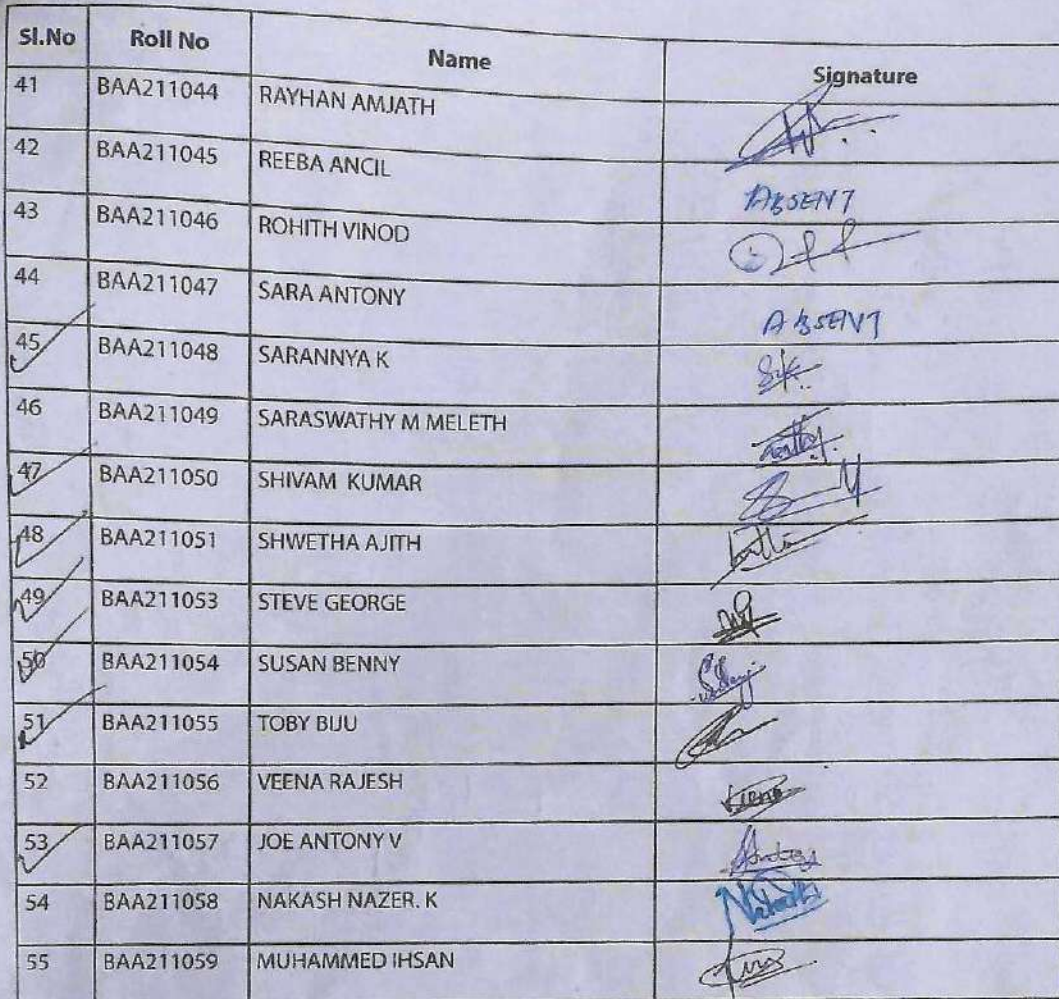 Sl.No Roll No Name Signature
41 BAA211044 RAYHAN AMJATH
42 BAA211045 REEBA ANCIL ABSENT
43 BAA211046 ROHITH VINOD
44 BAA211047 SARA ANTONY ABSENT
45 BAA211048 SARANNYA K
46 BAA211049 SARASWATHY M MELETH
47 BAA211050 SHIVAM KUMAR
48 BAA211051 SHWETHA AJITH
49 BAA211053 STEVE GEORGE
50 BAA211054 SUSAN BENNY
51 BAA211055 TOBY BIJU
52 BAA211056 VEENA RAJESH
53 BAA211057 JOE ANTONY V
54 BAA211058 NAKASH NAZER. K
55 BAA211059 MUHAMMED IHSAN